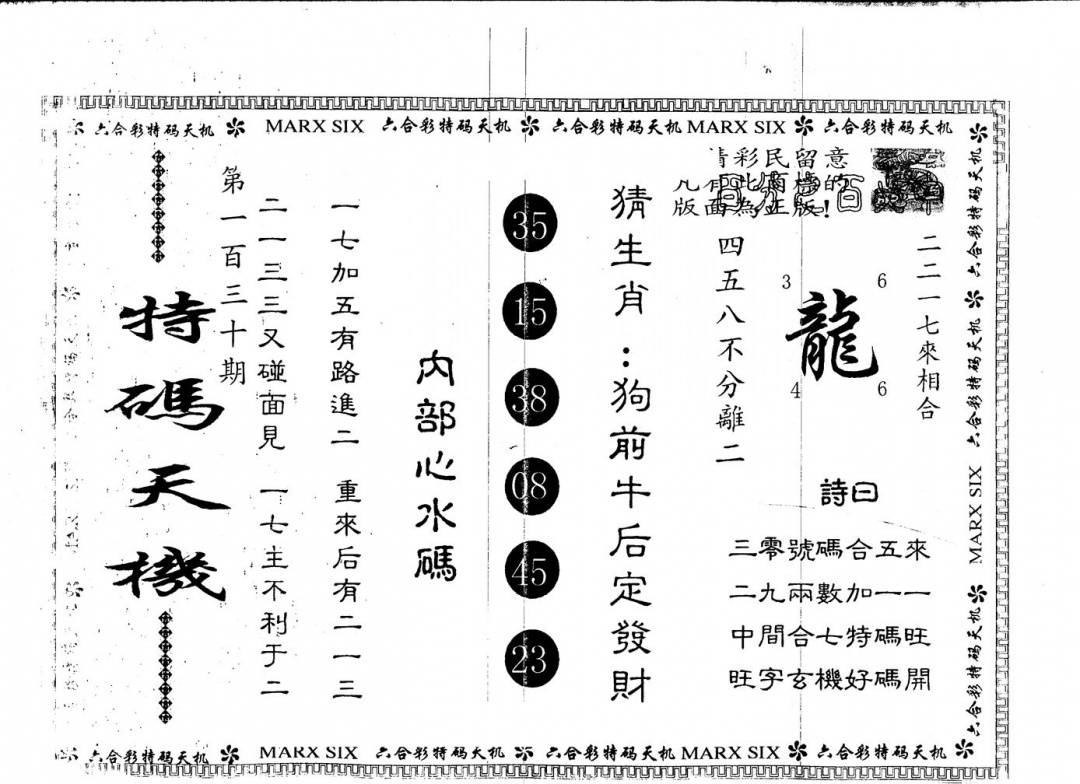 六合彩特码天机 MARX SIX 六合彩特码天机 六合彩特码天机 MARX SIX 六合彩特码天机
彩民留意
的
版面為正版!
二二一七來相合
3 6
龍
4 6
四五八不分離二
詩曰
三零號碼合五來
二九兩數加一一
中間合七特碼旺
旺字玄機好碼開
猜生肖:狗前牛后定發財
35
15
38
08
45
23
內部心水碼
一七加五有路進二 重來后有二一三
二一三三又碰面見 一七主不利于二
第一百三十期
特碼天機
六合彩特码天机 六合彩特码天机 MARX SIX 六合彩特码天机
六合彩特码天机 MARX SIX 六合彩特码天机 六合彩特码天机 MARX SIX 六合彩特码天机